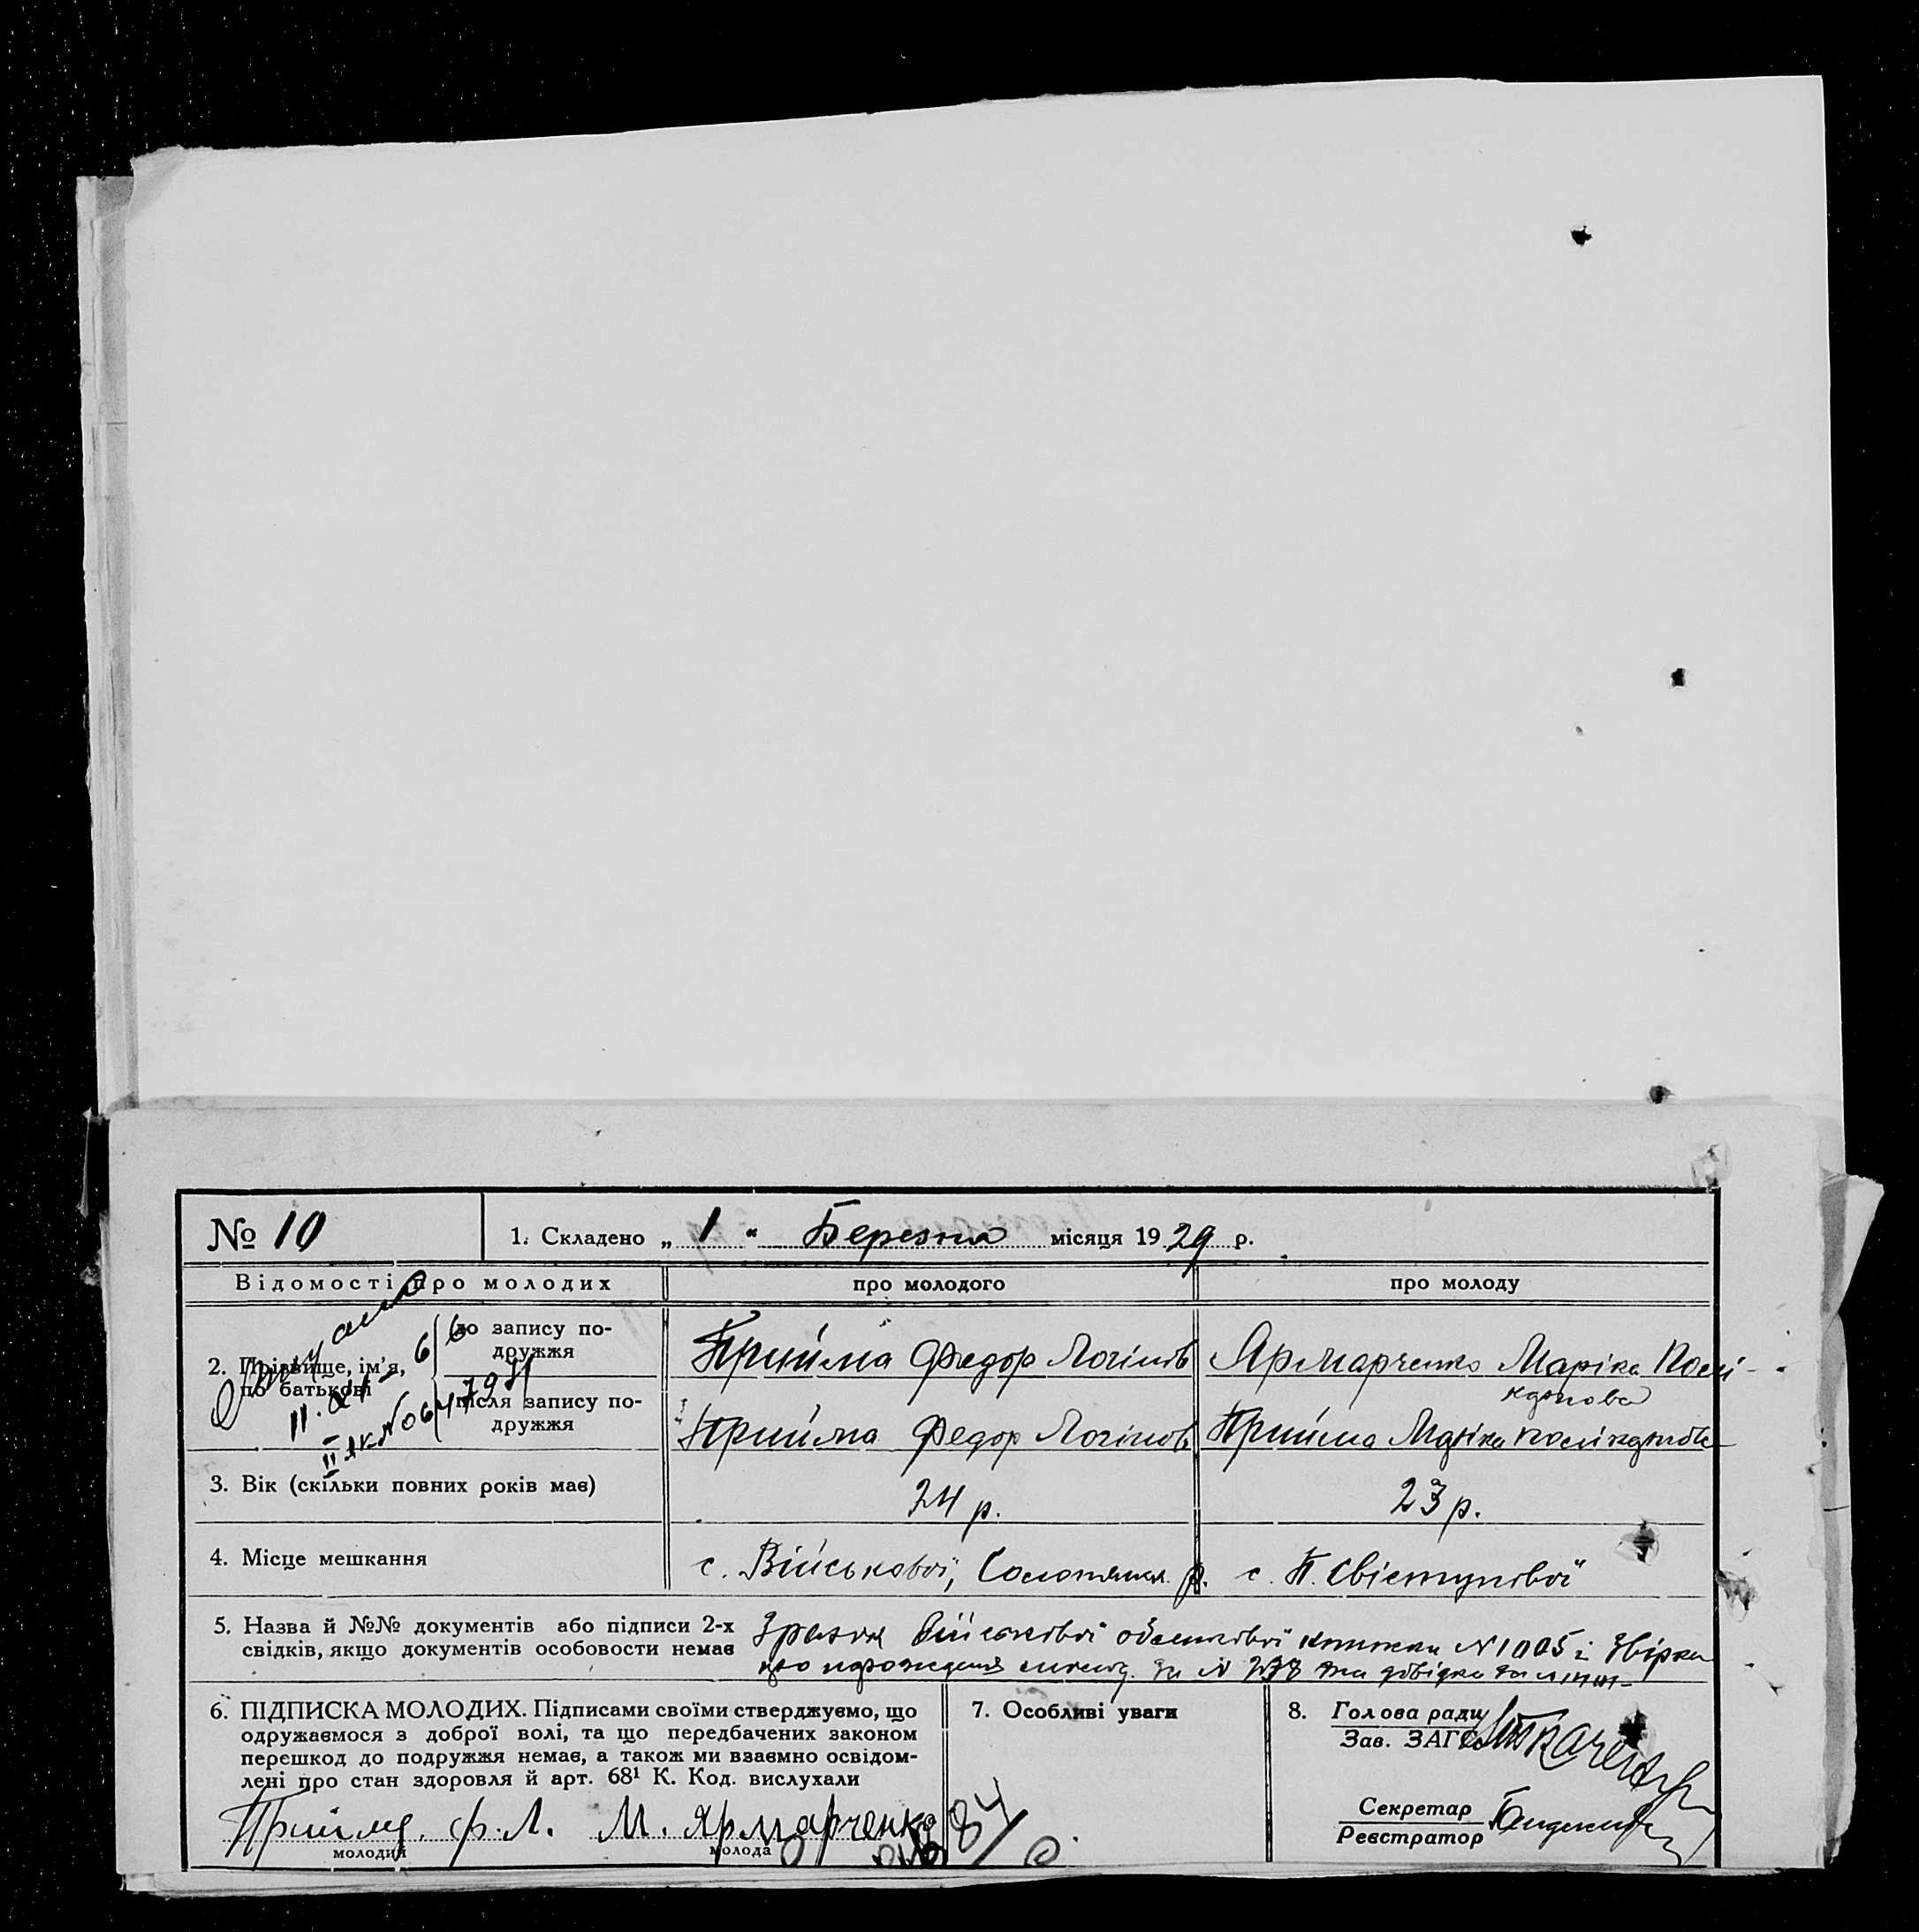 № 10
1. Складено „ 1 “ Березня місяця 1929 р.
Відомості про молодих
про молодого
про молоду
2. Прізвище, ім'я, по батькові
до запису по-
дружжя
Прийма Федор Логінов
Ярмарченко Маріка Полі-
карпова
після запису по-
дружжя
Прийма Федор Логінов
Прийма Маріка Полікарпова
3. Вік (скільки повних років має)
24 р.
23 р.
4. Місце мешкання
с. Військової, р.
с. П. Свістунової
5. Назва й №№ документів або підписи 2-х
свідків, якщо документів особовости немає
Зразок Військової облікової книжки N 1005 і
за N довідка за
6. ПІДПИСКА МОЛОДИХ. Підписами своїми стверджуємо, що
одружаємося з доброї волі, та що передбачених законом
перешкод до подружжя немає, а також ми взаємно освідом-
лені про стан здоровля й арт. 68¹ К. Код. вислухали
Прийма. Ф. Л. М. Ярмарченко
молодий
молода
7. Особливі уваги
84
8. Голова ради
Зав. ЗАГС'ом
Ткаченко
Секретар
Реєстратор